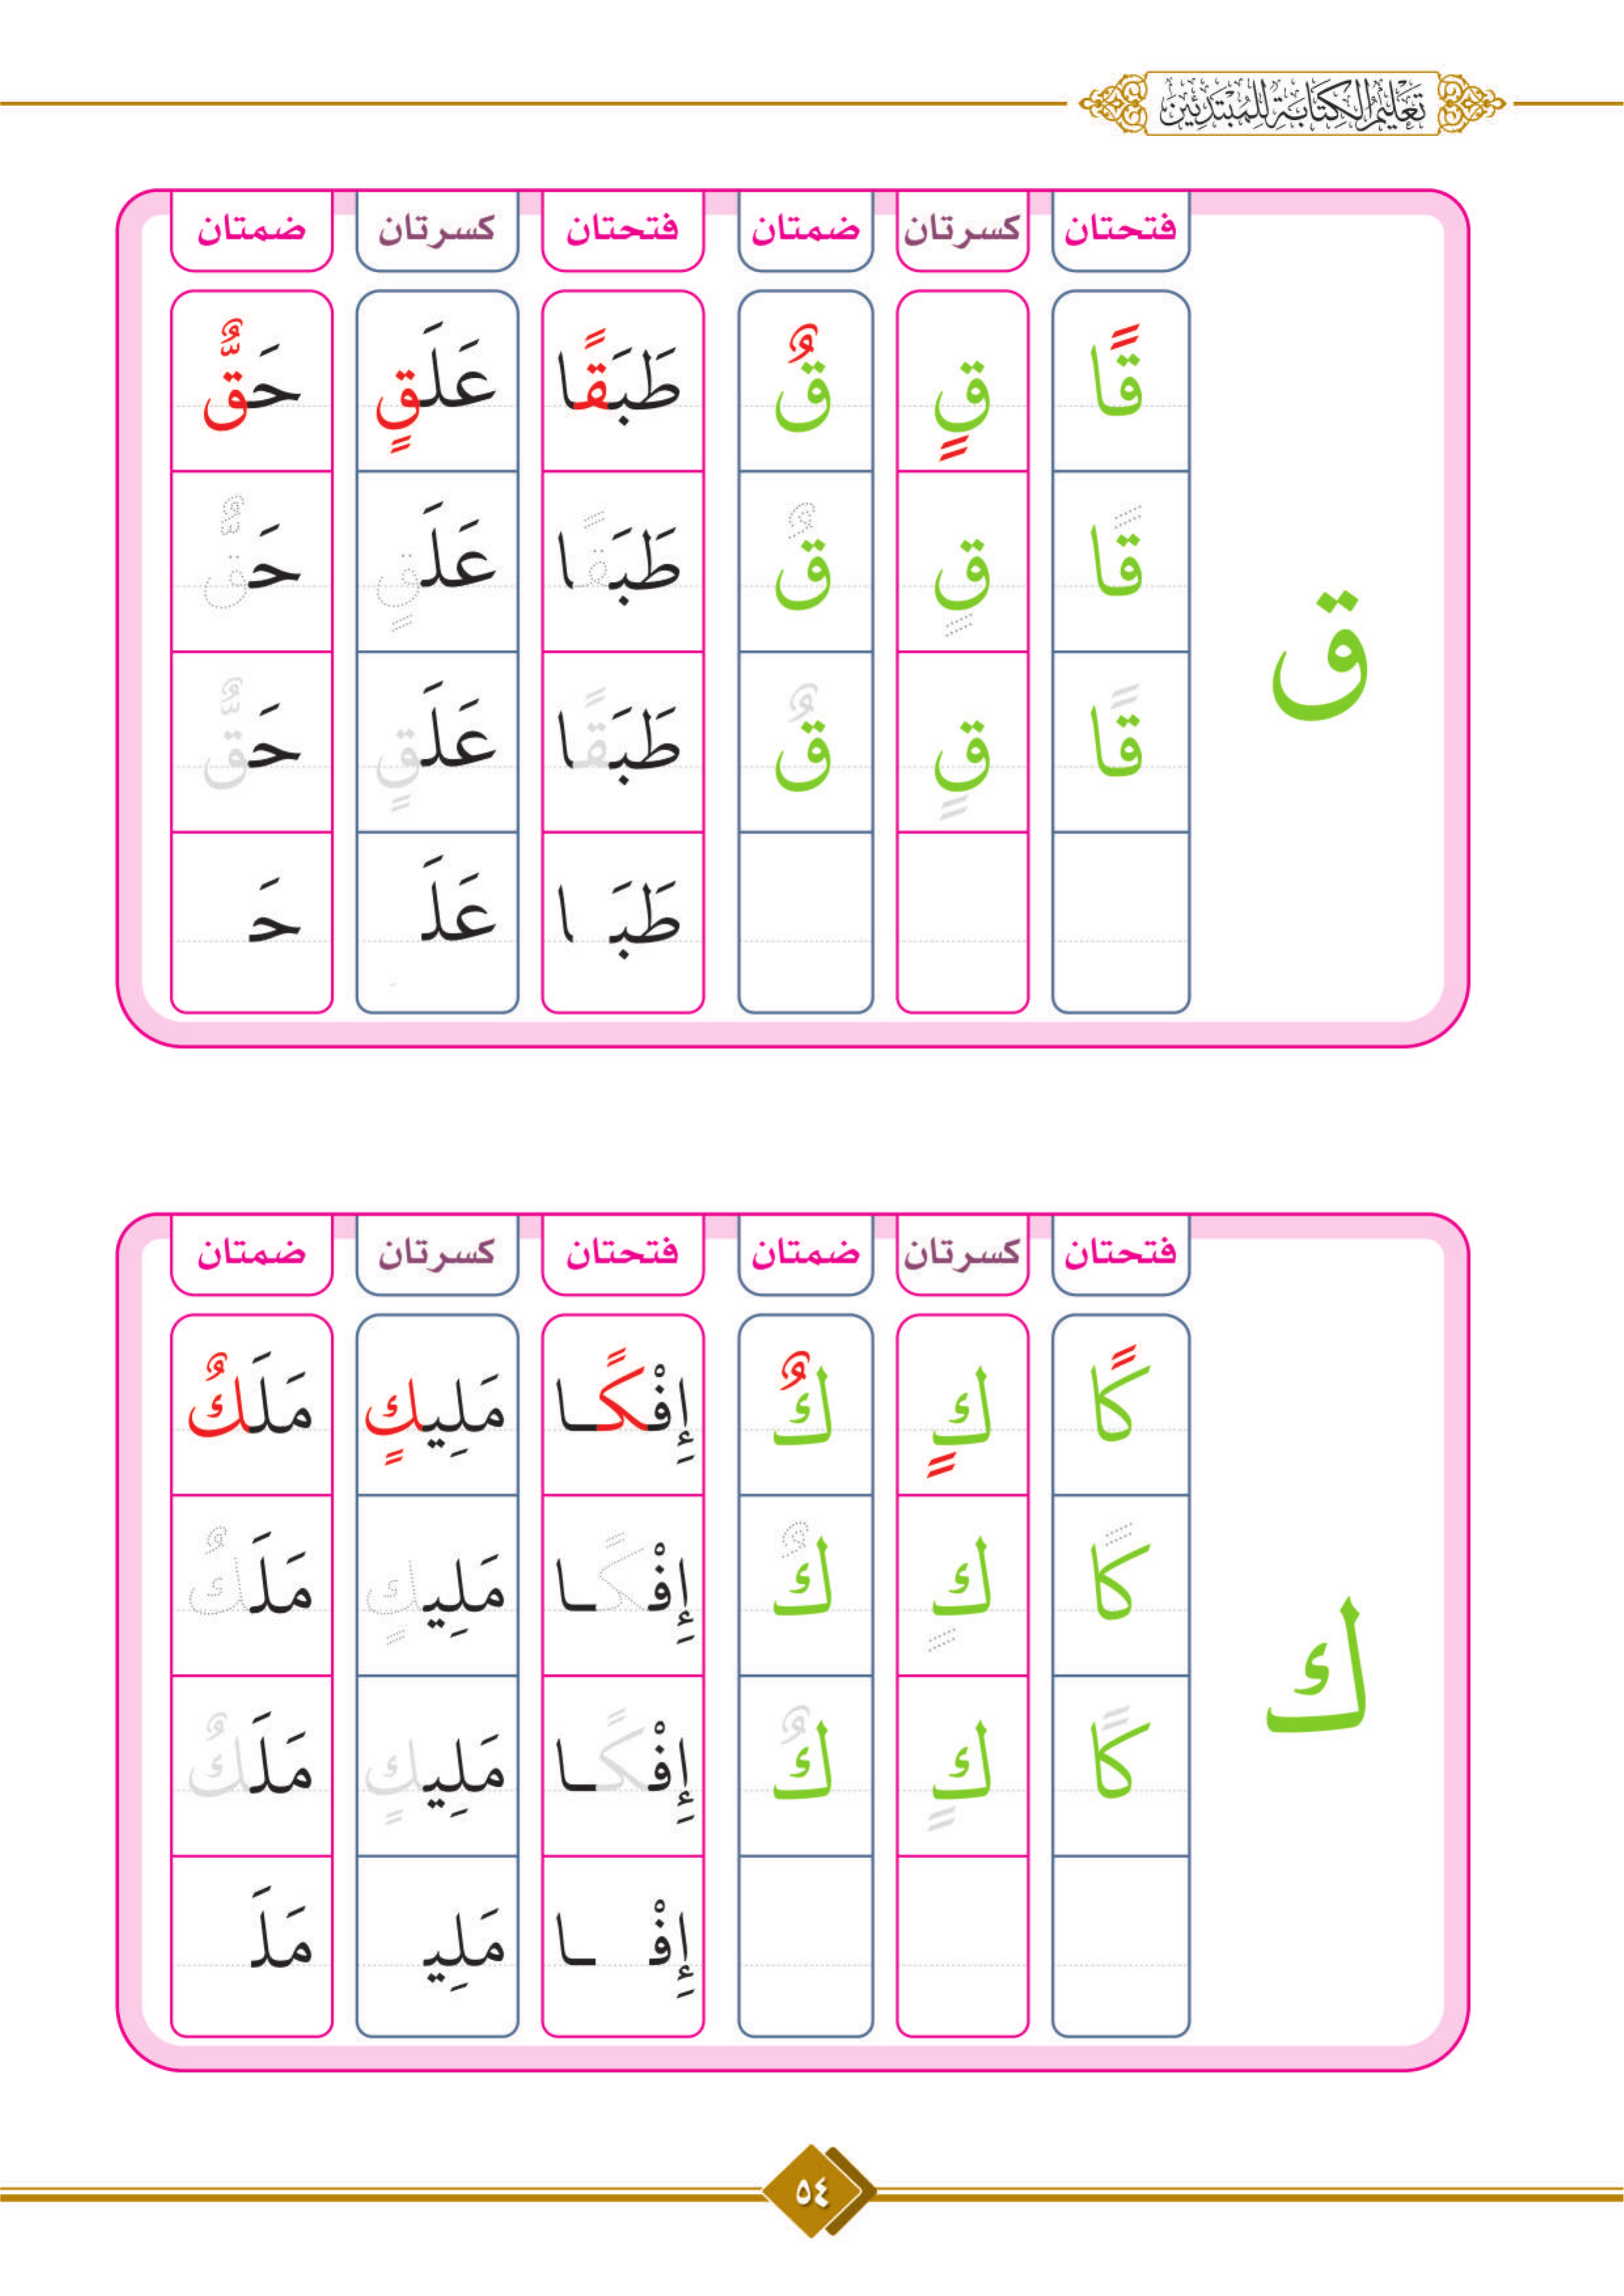 تَعْلِيمُ الْكِتَابَةِ لِلْمُبْتَدِئِينَ
فتحتان كسرتان ضمتان فتحتان كسرتان ضمتان
قًا قٍ قٌ طَبَقًا عَلَقٍ حَقٌّ
قًا قٍ قٌ طَبَقًا عَلَقٍ حَقٌّ
ق
قًا قٍ قٌ طَبَقًا عَلَقٍ حَقٌّ
طَبَـ ـا عَلَـ حَـ
فتحتان كسرتان ضمتان فتحتان كسرتان ضمتان
كًا كٍ كٌ إِفْكًا مَلِيكٍ مَلَكٌ
كًا كٍ كٌ إِفْكًا مَلِيكٍ مَلَكٌ
ك
كًا كٍ كٌ إِفْكًا مَلِيكٍ مَلَكٌ
إِفْـ ـا مَلِيـ مَلَـ
٥٤